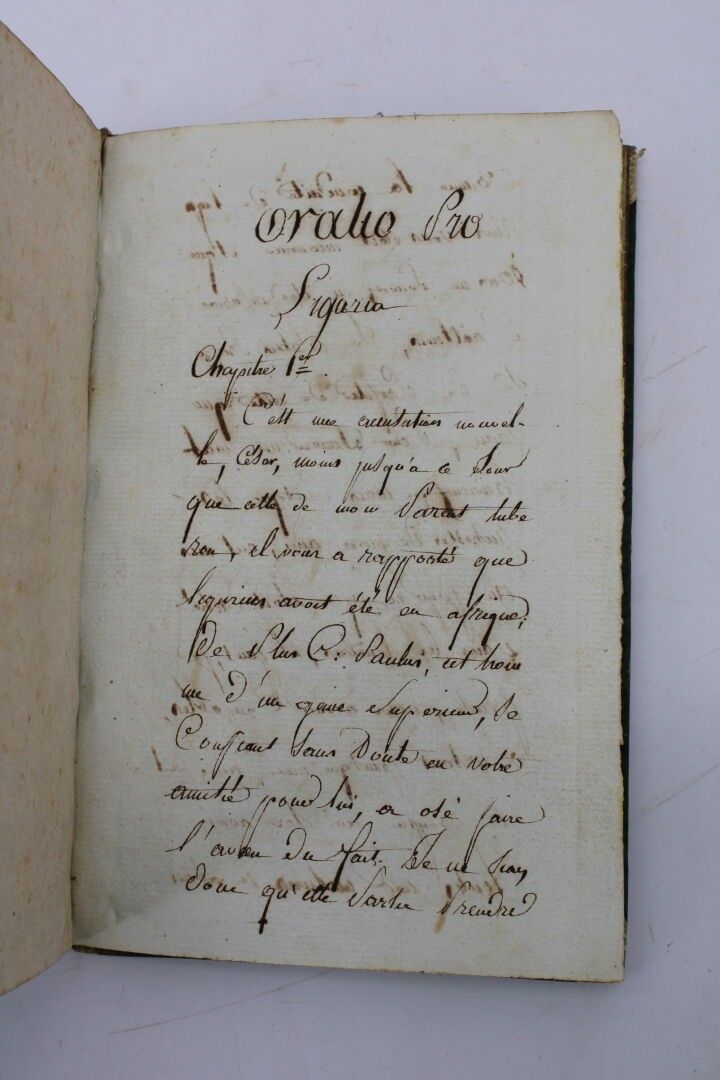 Oratio Pro
Ligario
Chapitre 1er.
C'est une accusation nouvel-
le, César, moins jusqu'à ce Jour
que celle de mon Parent tube
ron, il vous a rapporté que
ligurius avoit été en afrique;
de Plus C. Pansus, cet hom
me d'un genie Superieur, Se
Confiant Sans Doute en votre
amitié pour lui, a osé faire
l'aveu Du fait. Je ne Scay
donc qu'elle Partie Prendre